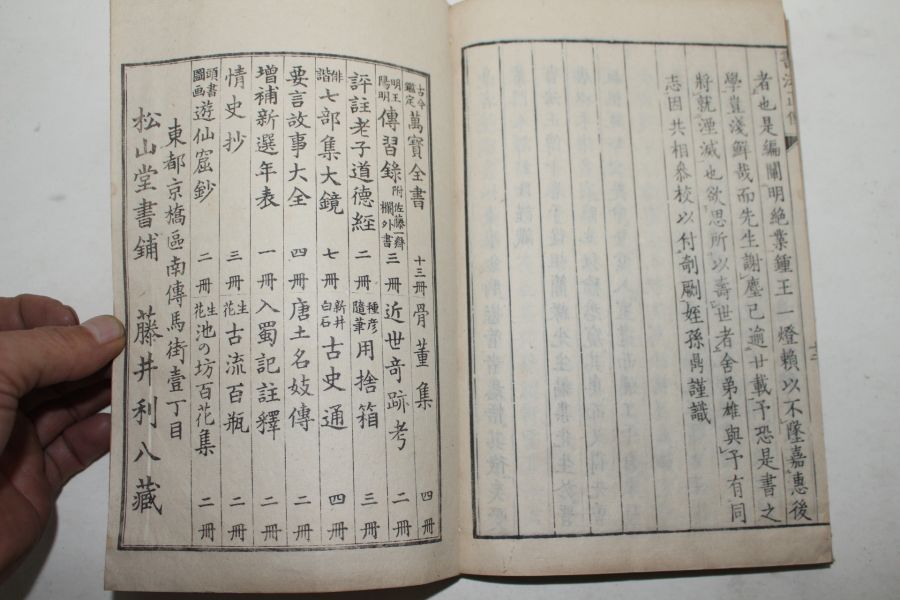 者也是編闡明絶業鍾王一燈賴以不墜嘉惠後
學豈淺鮮哉而先生謝塵已逾廿載予恐是書之
將就湮滅也欲思所以壽世者舍弟雄與予有同
志因共相叅校以付剞劂姪孫鼎謹識
十二
古今鑑定 萬寶全書 十三冊 骨董集 四冊
明王陽明 傳習錄 附佐藤一齋欄外書 三冊 近世奇跡考 二冊
評註老子道德經 二冊 種彥隨筆 用捨箱 三冊
俳諧 七部集大鏡 七冊 新井白石 古史通 四冊
要言故事大全 四冊 唐土名妓傳 二冊
增補新選年表 一冊 入蜀記註釋 二冊
情史抄 三冊 生花 古流百瓶 二冊
頭書圖画 遊仙窟鈔 二冊 生花 池の坊百花集 二冊
東都京橋區南傳馬街壹丁目
松山堂書鋪 藤井利八藏